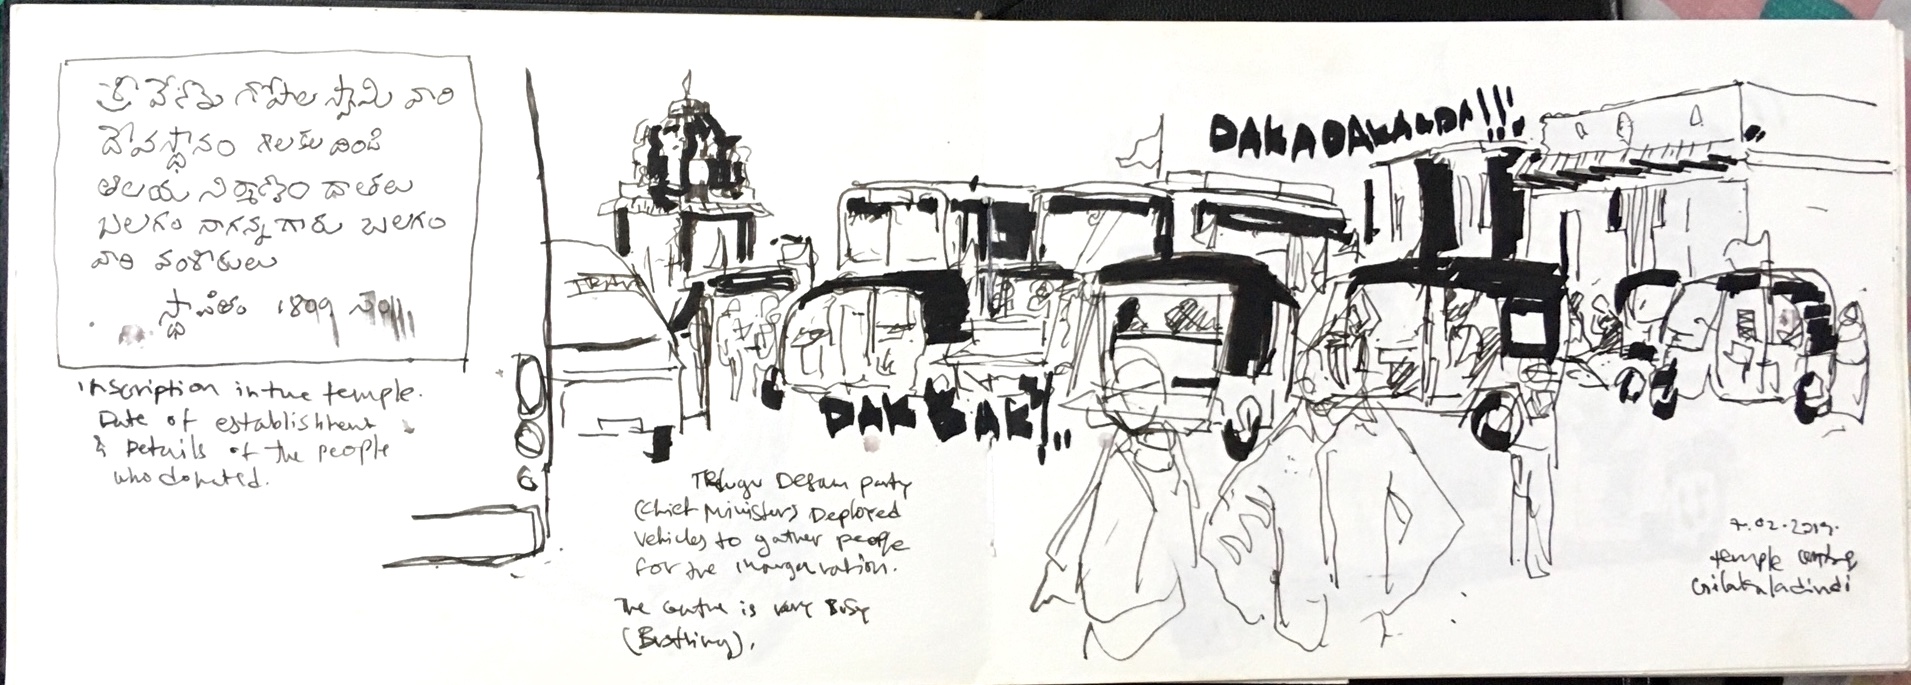 శ్రీ వేణు గోపాల స్వామి వారి
దేవస్థానం గిలకలదిండి
ఆలయ నిర్మాణం దాతలు
బలగం నాగన్న గారు బలగం
వారి వంశీకులు
స్థాపితం 1899 సం||
inscription in the temple.
Date of establishment
& Details of the people
who donated.
TRAV
DAKADAKADA!!!
DAK DAK!..
Telugu Desam party
(Chief Minister) Deployed
vehicles to gather people
for the inauguration.
The centre is very Busy
(Bustling).
7.02.2019.
temple centre
Gilakaladindi